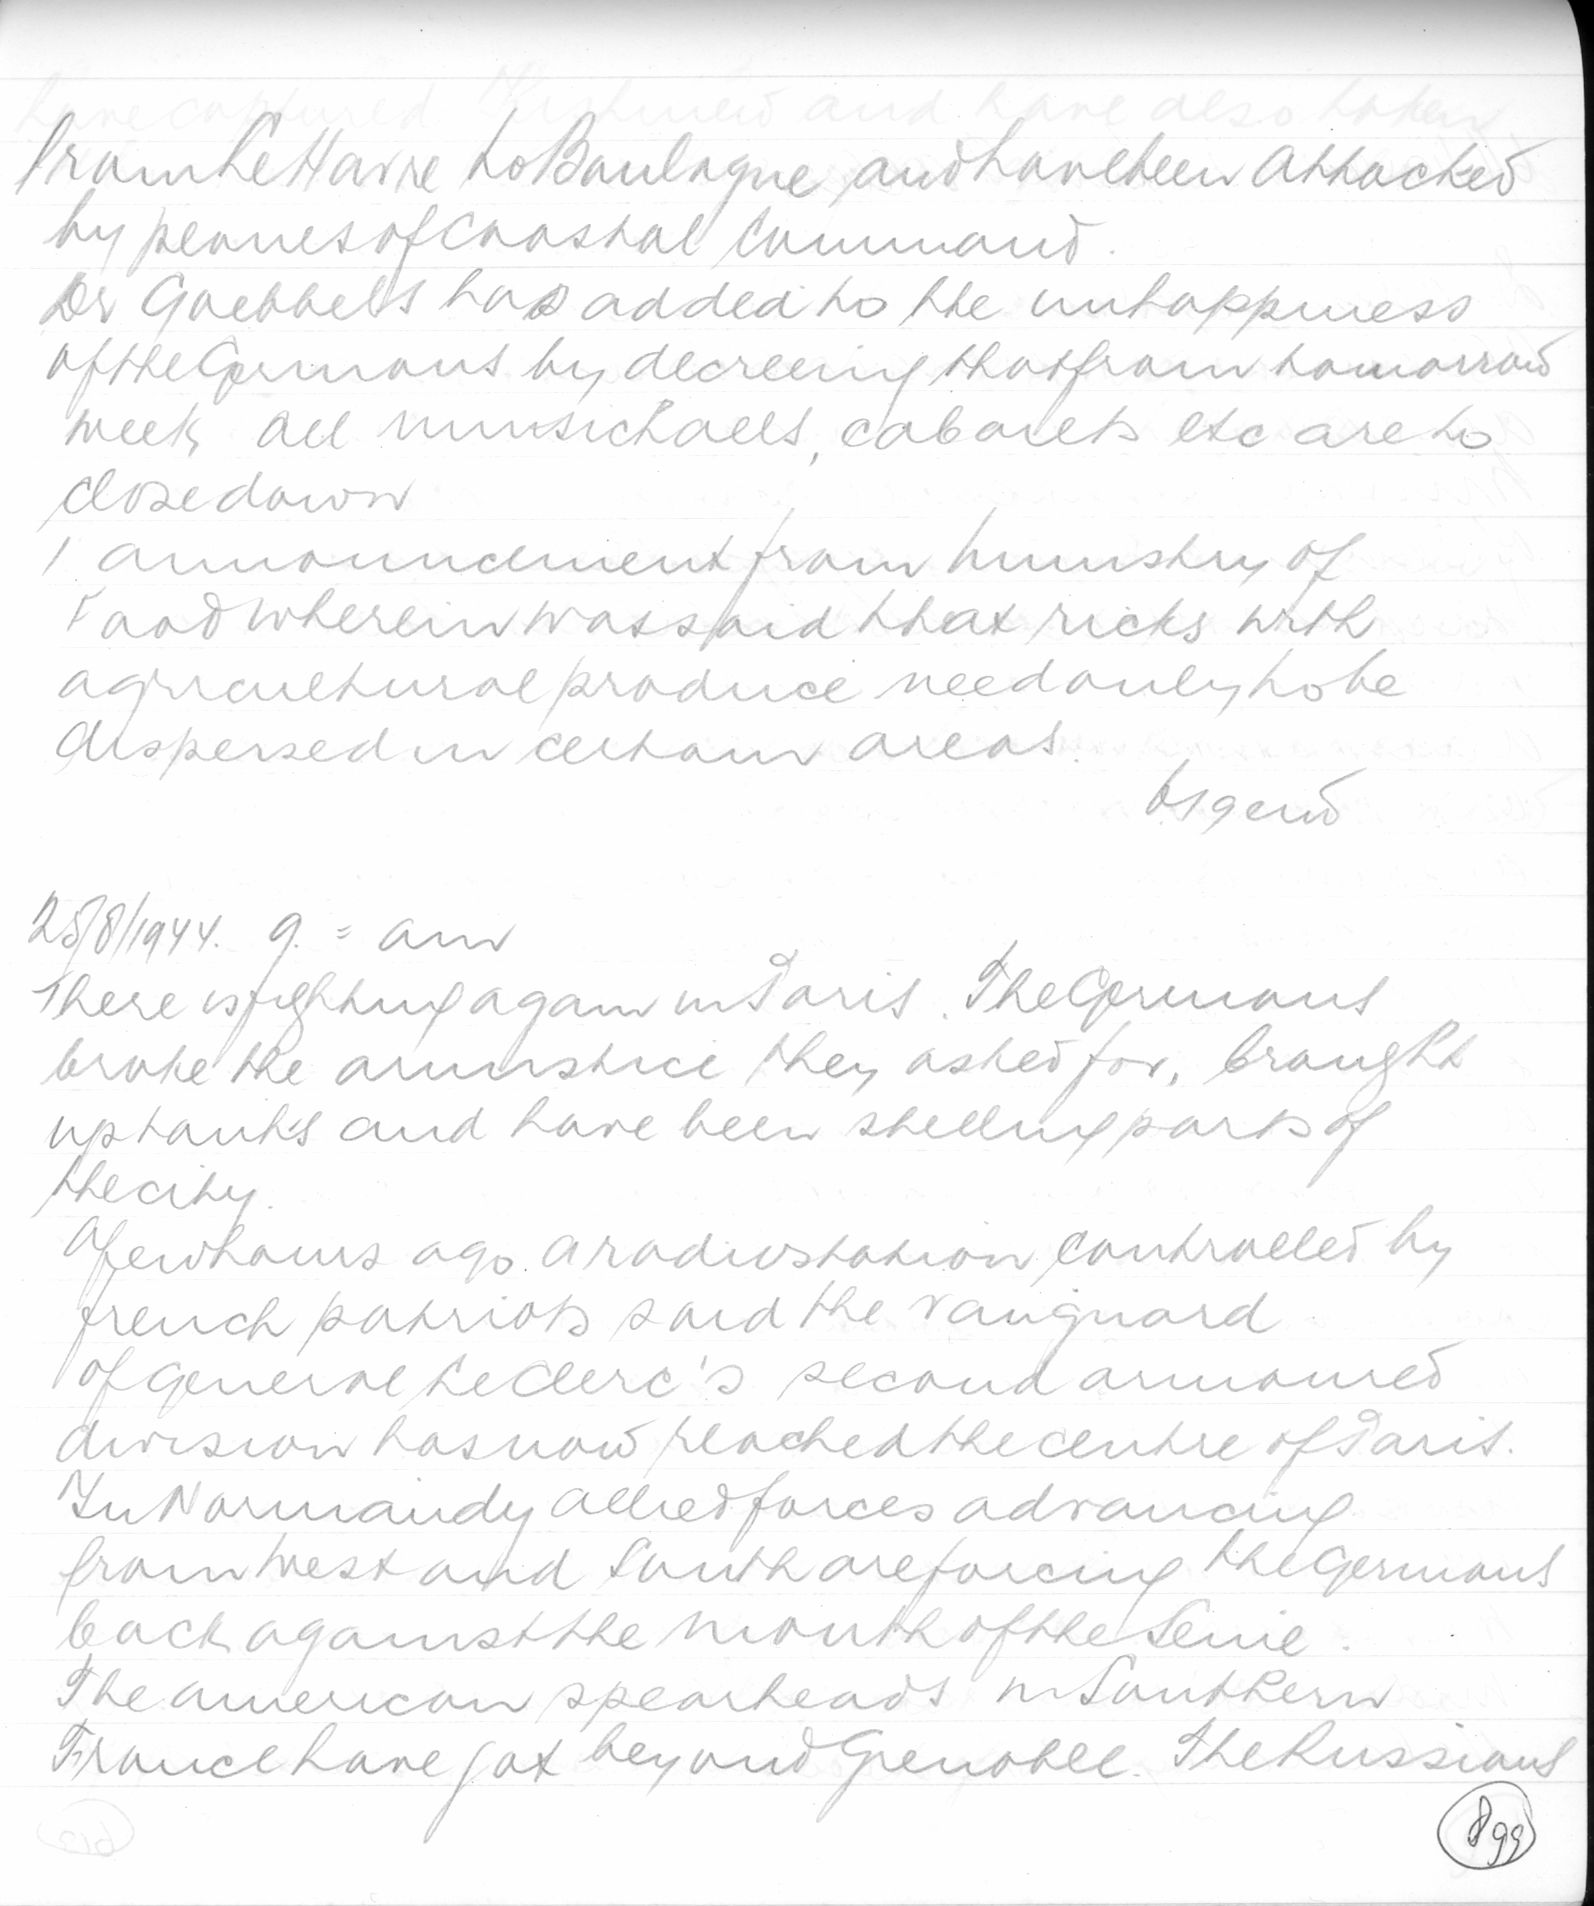 from Le Havre to Boulogne, and have been attacked
by planes of Coastal Command.
Dr Goebbels has added to the unhappiness
of the Germans by decreeing that from tomorrow
week all musichalls, cabarets etc are to
close down
1 announcement from ministry of
Food wherein was said that ricks with
agricultural produce need only to be
dispersed in certain areas.
end
25/8/1944. 9 = am
There is fighting again in Paris. The Germans
broke the armistice they asked for, brought
up tanks and have been shelling parts of
the city.
A few hours ago a radiostation controlled by
french patriots said the vanguard
of general Leclerc's second armoured
division has now reached the centre of Paris.
In Normandy allied forces advancing
from West and South are forcing the Germans
back against the mouth of the Seine.
The american spearheads in Southern
France have got beyond Grenoble. The Russians
899